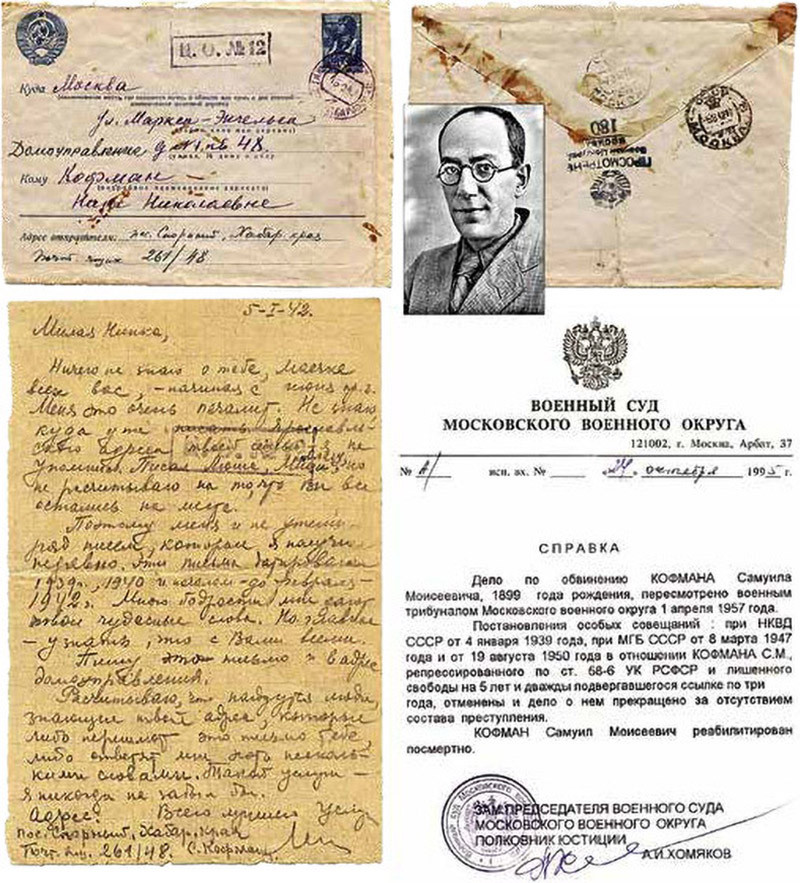 П.О. №12
Куда Москва
ул. Маркса-Энгельса
Домоуправление д №
48.
Кому Кофман
Николаевне
Адрес отправителя: пос. Спорный, Хабар. край
Почт. ящик 261/48
МОСКВА
180
ПРОСМОТРЕНО
5-I-42.
Милая Нинка,
Ничего не знаю о тебе,
всех вас, - начиная с июня пр. г.
Меня это очень печалит. Не знаю
куда уже писать.
адреса твоей я не
упомнил. Писал но
не рассчитываю на то, что вы все
остались на месте.
Поэтому меня и не утешил
ряд писем, которые я получил
недавно. Эти письма датированы
1939г., 1940 и началом - до февраля -
194 г. Много бодрости мне дают
твои чудесные слова. Но главное
- узнать, что с Вами всеми.
Пишу это письмо и в адрес
домоуправления.
Рассчитываю, что найдутся люди,
знающие твой адрес, которые
либо перешлют это письмо тебе,
либо ответят мне хоть несколь-
кими словами. Такой услуги -
я никогда не забыл бы.
Адрес: Всего лучшего
пос. Спорный, Хабар. края
Почт. ящ. 261/48. С. Кофман
ВОЕННЫЙ СУД
МОСКОВСКОГО ВОЕННОГО ОКРУГА
121002, г. Москва, Арбат, 37
№ исп. вх. № „27“ октября 1995 г.
СПРАВКА
Дело по обвинению КОФМАНА Самуила
Моисеевича, 1899 года рождения, пересмотрено военным
трибуналом Московского военного округа 1 апреля 1957 года.
Постановления особых совещаний : при НКВД
СССР от 4 января 1939 года, при МГБ СССР от 8 марта 1947
года и от 19 августа 1950 года в отношении КОФМАНА С.М.,
репрессированного по ст. 58-6 УК РСФСР и лишенного
свободы на 5 лет и дважды подвергавшегося ссылке по три
года, отменены и дело о нем прекращено за отсутствием
состава преступления.
КОФМАН Самуил Моисеевич реабилитирован
посмертно.
ЗАМ ПРЕДСЕДАТЕЛЯ ВОЕННОГО СУДА
МОСКОВСКОГО ВОЕННОГО ОКРУГА
ПОЛКОВНИК ЮСТИЦИИ
А.И.ХОМЯКОВ